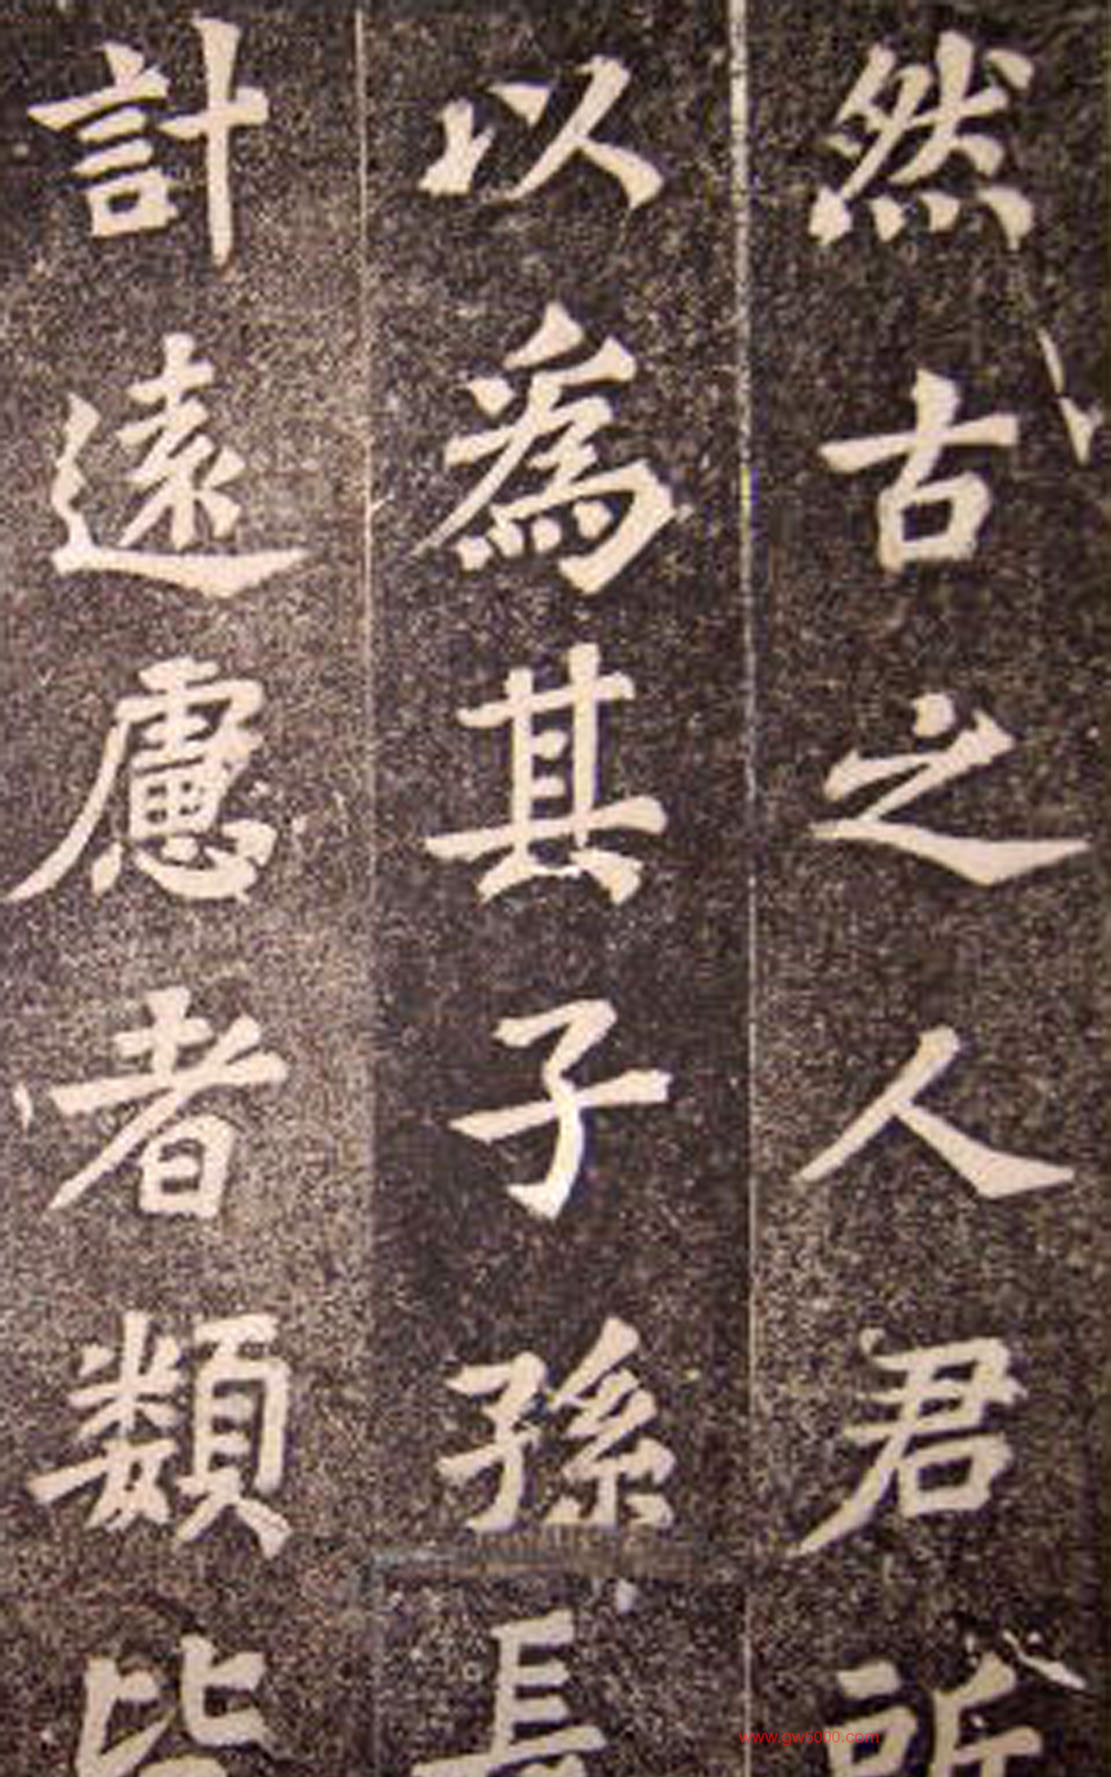 然古之人君所
以為其子孫長
計遠慮者類皆
www.gw5000.com